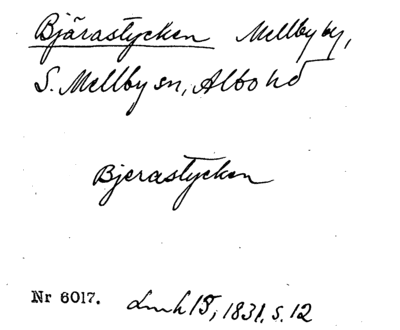 Bjärastycken Mellby by,
S. Mellby sn, Albo hd
Bjerastycken
Nr 6017. Lmh 15, 1831. s. 12